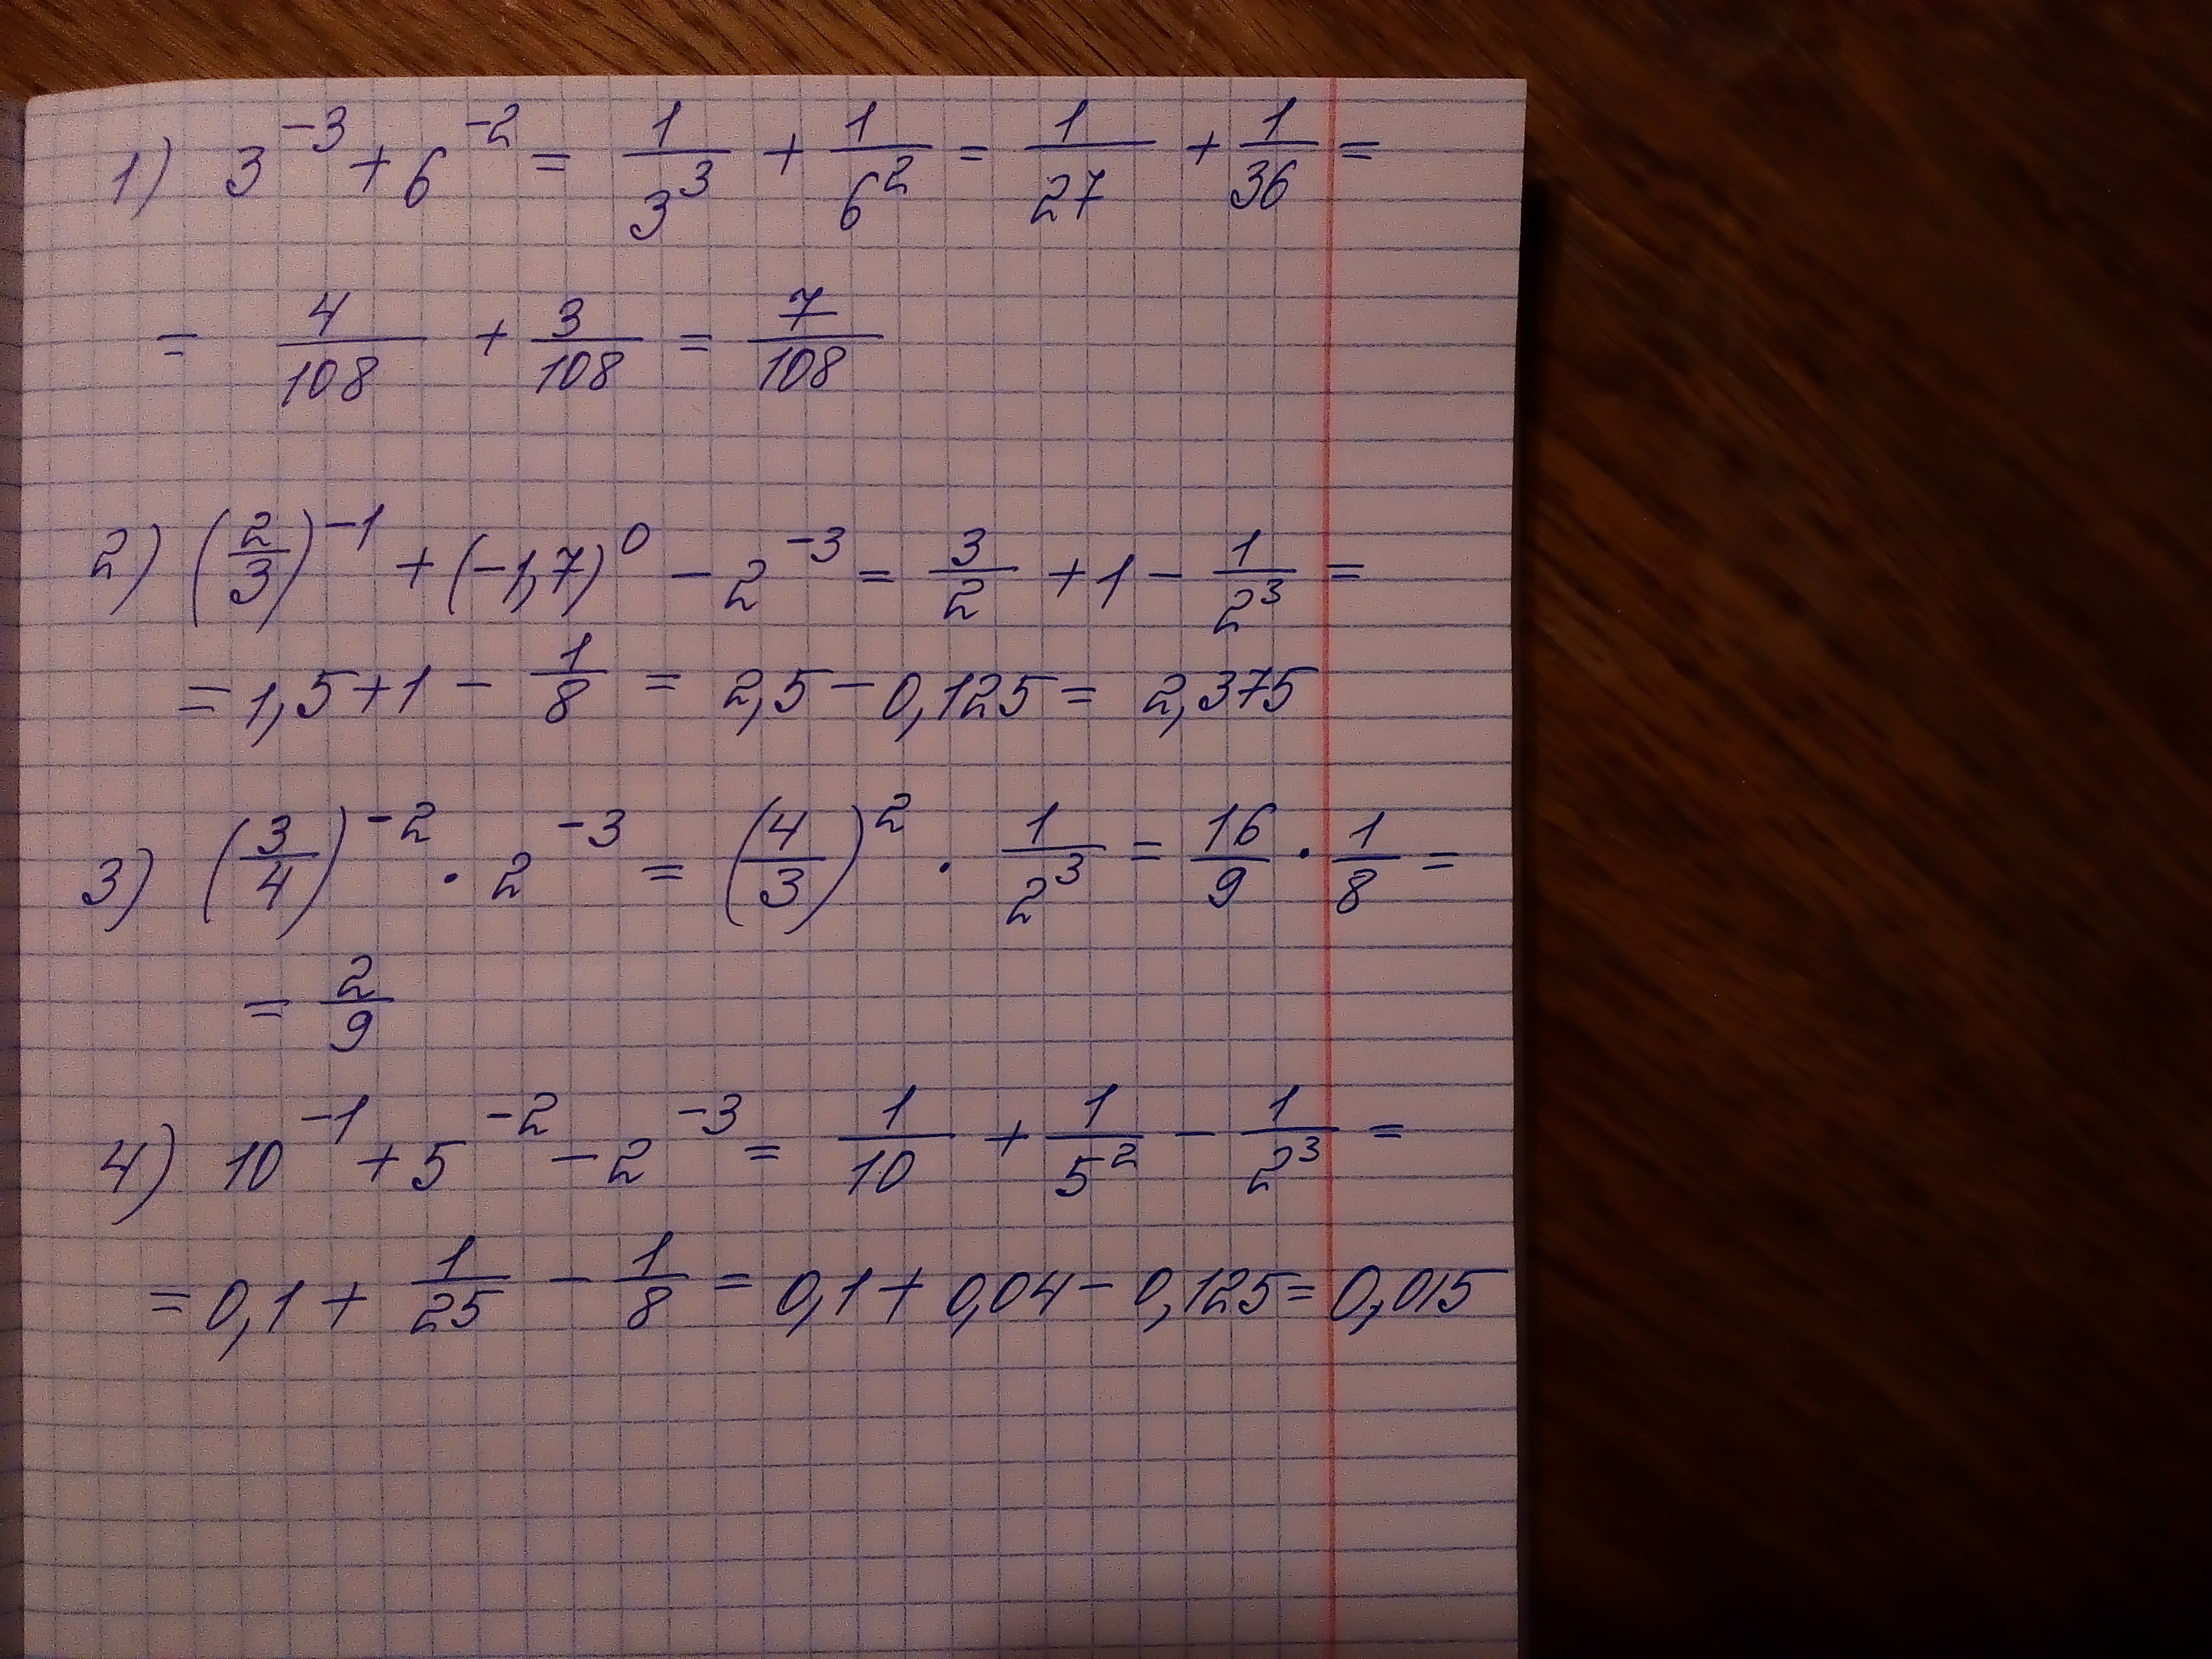 1) 3^{-3} + 6^{-2} = \frac{1}{3^3} + \frac{1}{6^2} = \frac{1}{27} + \frac{1}{36} =
= \frac{4}{108} + \frac{3}{108} = \frac{7}{108}
2) (\frac{2}{3})^{-1} + (-1,7)^0 - 2^{-3} = \frac{3}{2} + 1 - \frac{1}{2^3} =
= 1,5 + 1 - \frac{1}{8} = 2,5 - 0,125 = 2,375
3) (\frac{3}{4})^{-2} · 2^{-3} = (\frac{4}{3})^2 · \frac{1}{2^3} = \frac{16}{9} · \frac{1}{8} =
= \frac{2}{9}
4) 10^{-1} + 5^{-2} - 2^{-3} = \frac{1}{10} + \frac{1}{5^2} - \frac{1}{2^3} =
= 0,1 + \frac{1}{25} - \frac{1}{8} = 0,1 + 0,04 - 0,125 = 0,015